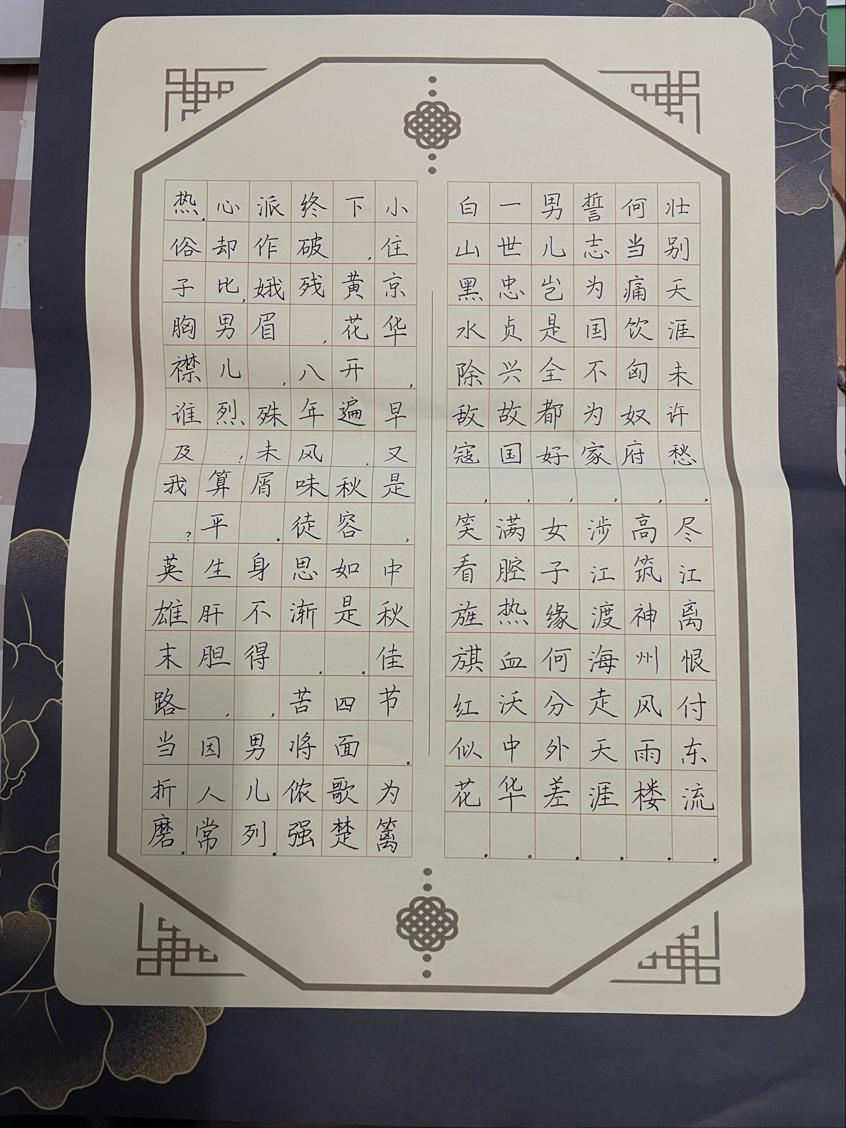 壮别天涯未许愁,尽江离恨付东流.
何当痛饮匈奴府,高筑神州风雨楼.
誓志为国不为家,涉江渡海走天涯.
男儿岂是全都好,女子缘何分外差.
一世忠贞兴故国,满腔热血沃中华。
白山黑水除敌寇,笑看旌旗红似花.
小住京华,早又是,中秋佳节.为篱
下,黄花开遍,秋容如是.四面歌楚
终破残,八年风味徒思渐.苦将侬强
派作娥眉,殊未屑.身不得,男儿列.
心却比,男儿烈;算平生肝胆,因人常
热.俗子胸襟谁及我?英雄末路当折磨.